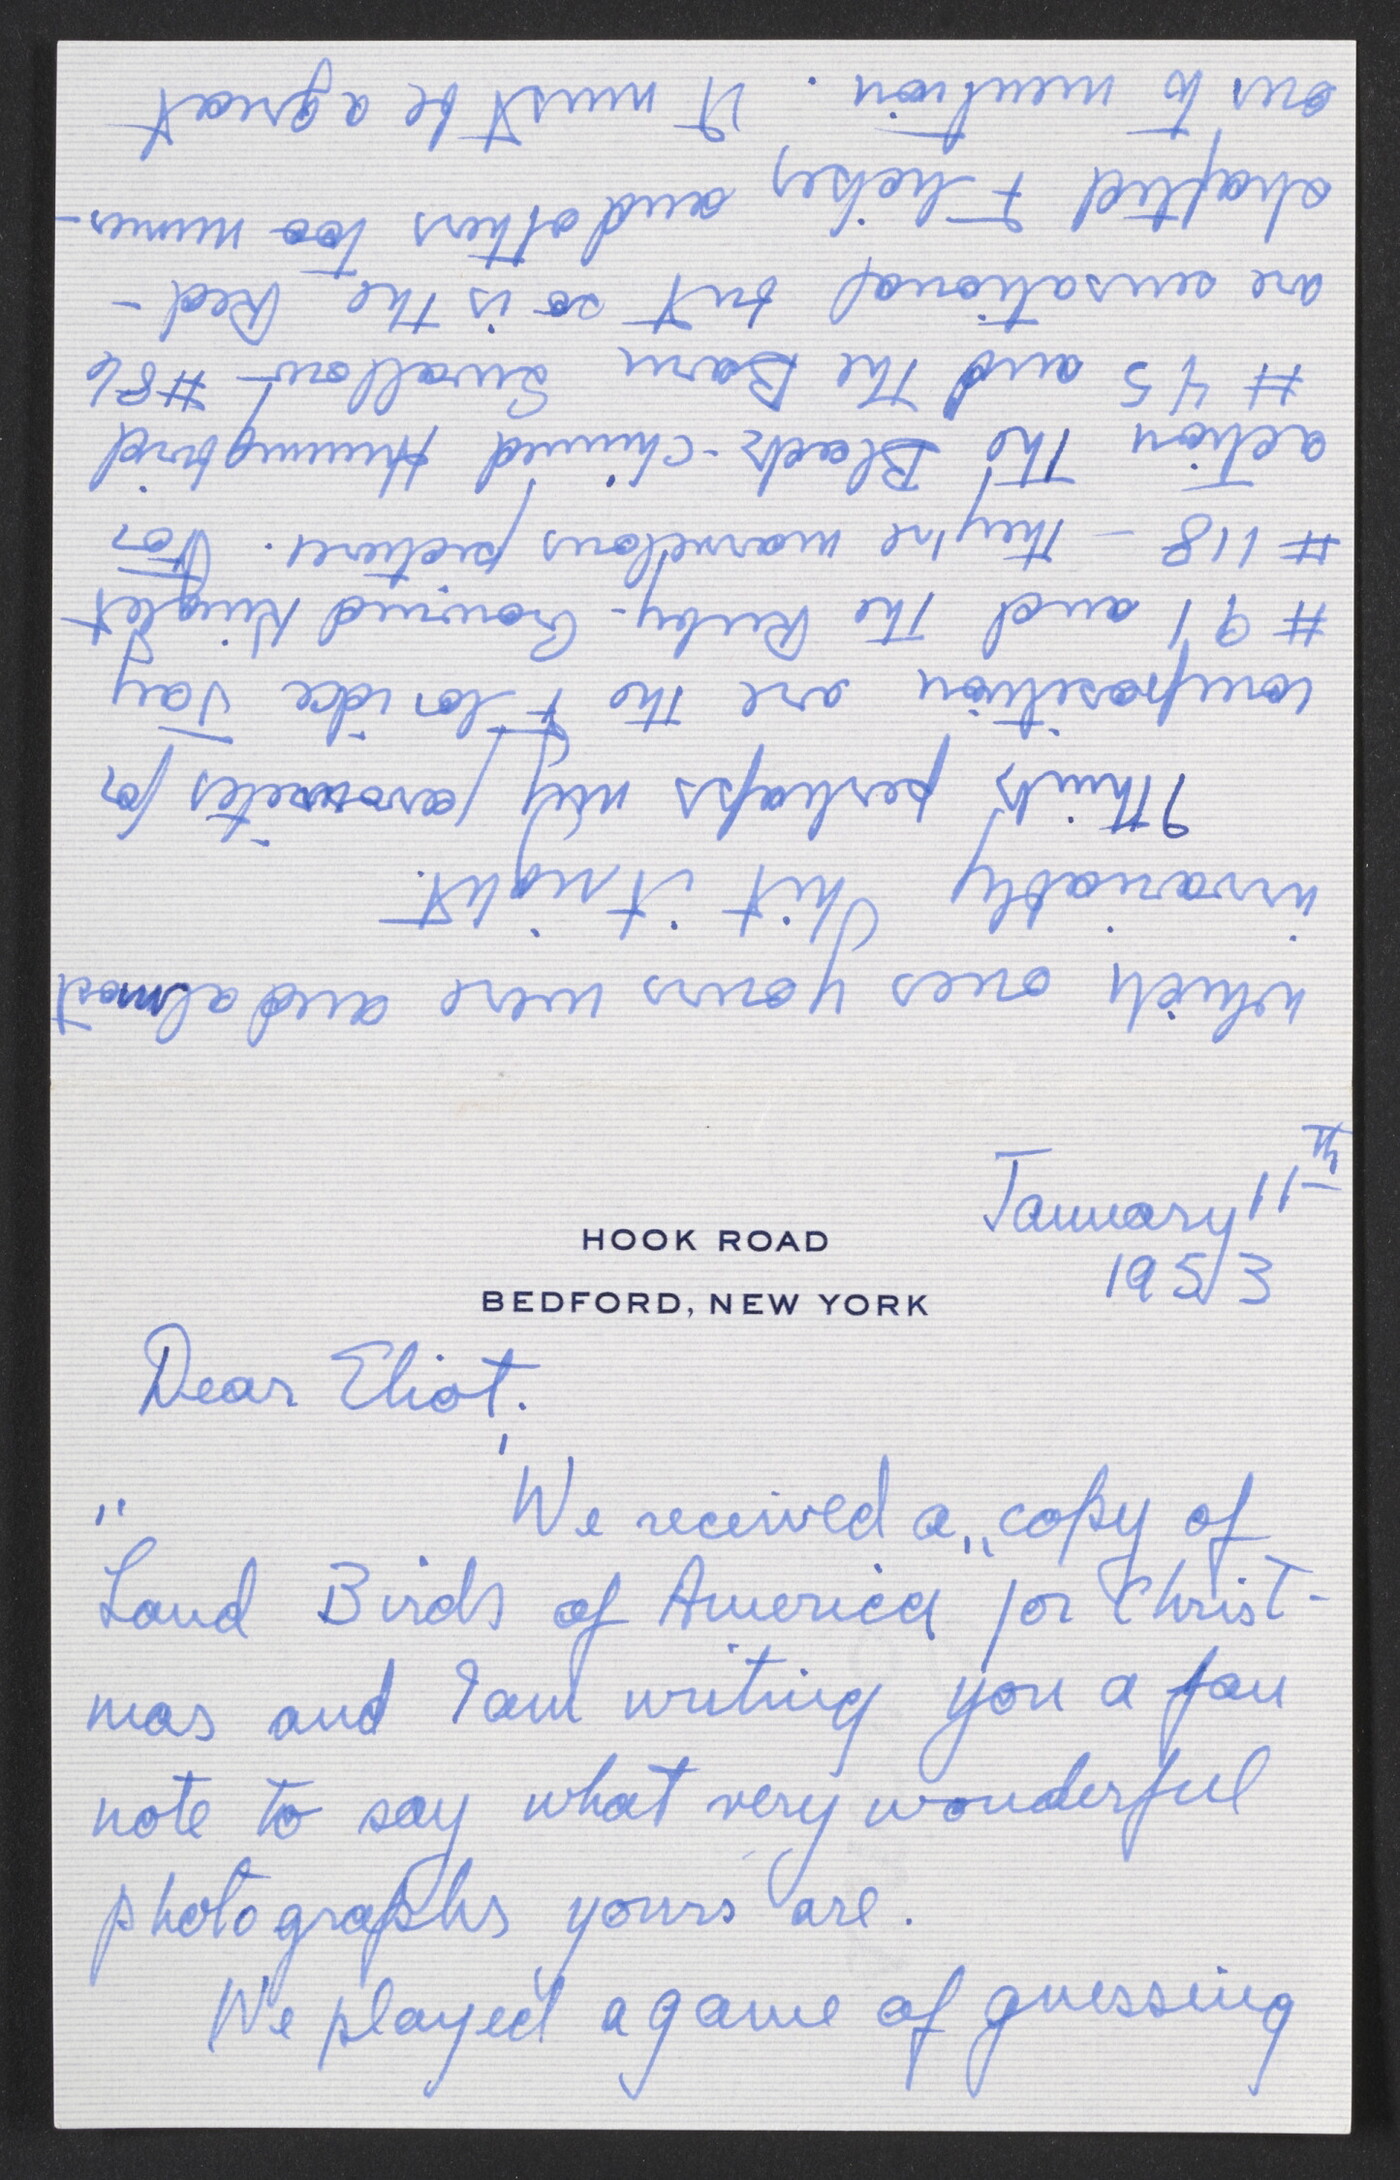 January 11th
1953
HOOK ROAD
BEDFORD, NEW YORK
Dear Eliot:
We received a copy of
"Land Birds of America" for Christ-
mas and I am writing you a fan
note to say what very wonderful
photographs yours are.
We played a game of guessing
which ones yours were and almost
invariably hit it right.
I think perhaps my favourites for
composition are the Florida Jay
#91 and the Ruby-Crowned Kinglet
#118 - they're marvelous pictures. For
action the Black-chinned Hummingbird
#45 and the Barn Swallow - #86
are sensational but so is the Red-
shafted Flicker, and others too numer-
ous to mention. It must be a great